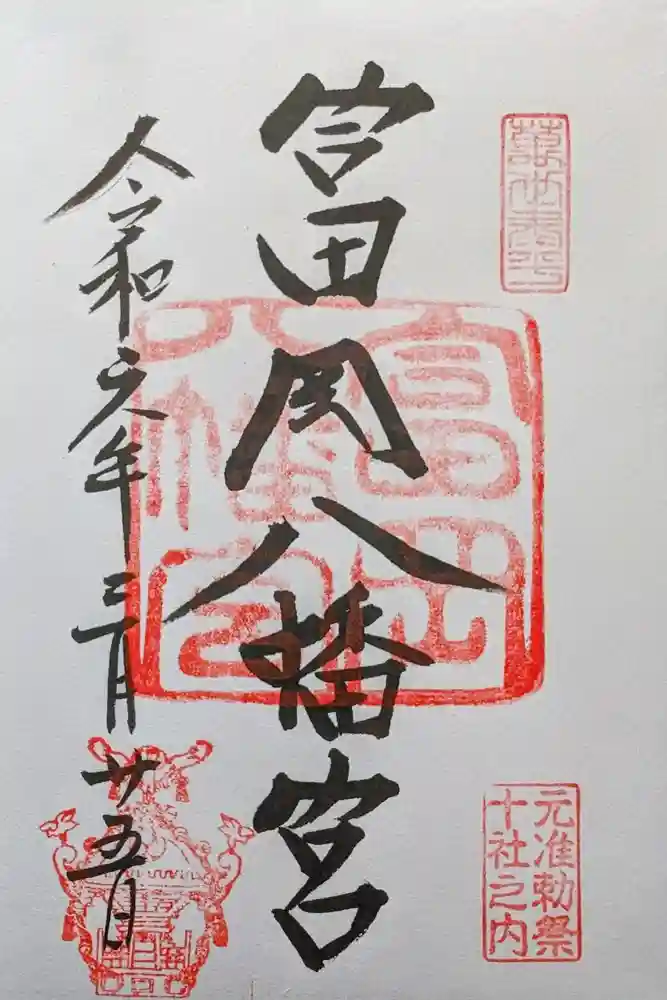 元准勅祭
十社之内
富岡八幡宮
富岡
八幡宮
令和六年三月廿五日